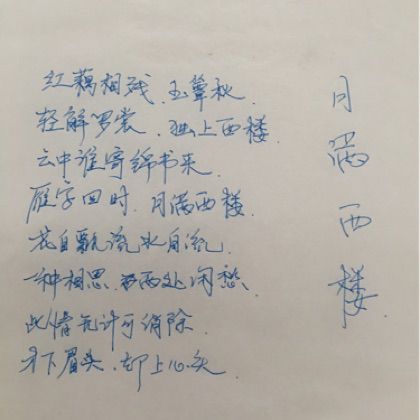 月满西楼
红藕相残.玉簟秋.
轻解罗裳.独上西楼
云中谁寄绵书来
雁字回时.月满西楼
花自飘流水自流
一种相思.两处闲愁.
此情无许可消除
才下眉头.却上心头